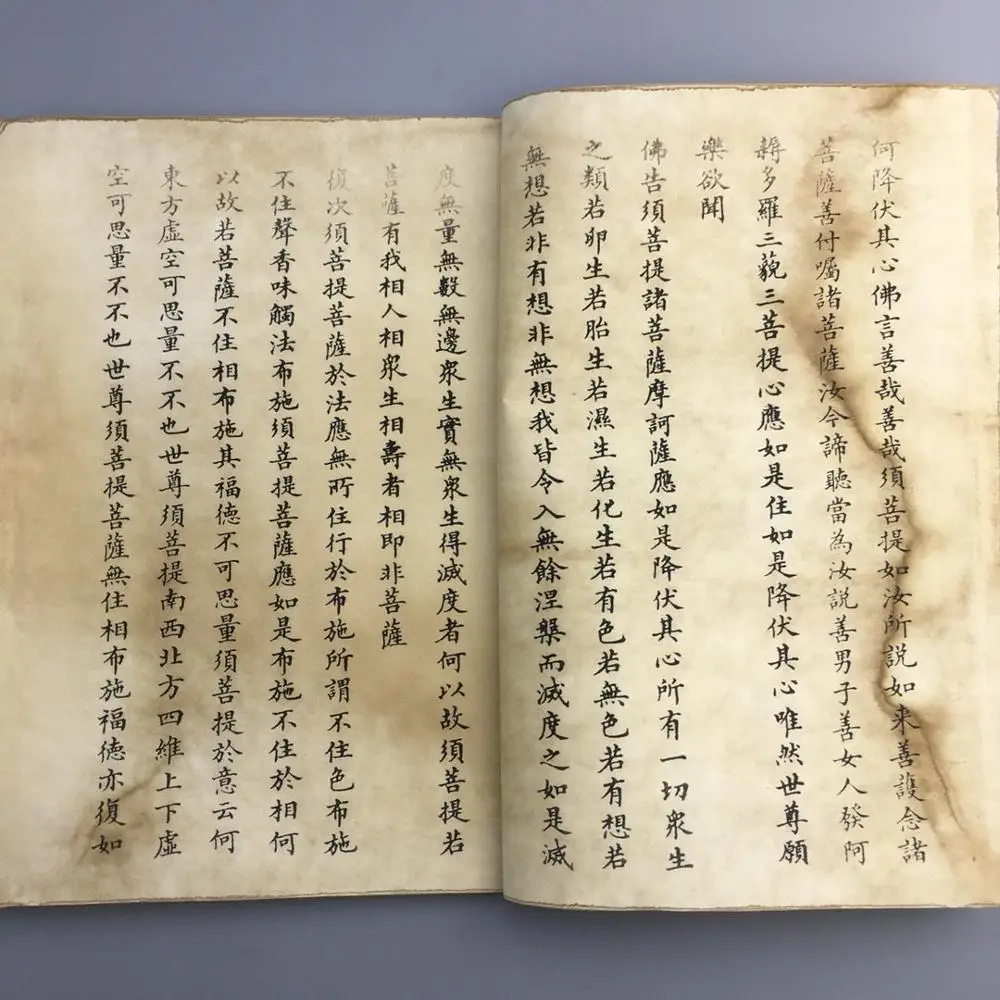 何降伏其心佛言善哉善哉須菩提如汝所説如来善護念諸
菩薩善付囑諸菩薩汝今諦聽當為汝説善男子善女人發阿
耨多羅三藐三菩提心應如是住如是降伏其心唯然世尊願
樂欲聞
佛告須菩提諸菩薩摩訶薩應如是降伏其心所有一切衆生
之類若卵生若胎生若濕生若化生若有色若無色若有想若
無想若非有想非無想我皆令入無餘涅槃而滅度之如是滅
度無量無數無邊衆生實無衆生得滅度者何以故須菩提若
菩薩有我相人相衆生相壽者相即非菩薩
復次須菩提菩薩於法應無所住行於布施所謂不住色布施
不住聲香味觸法布施須菩提菩薩應如是布施不住於相何
以故若菩薩不住相布施其福德不可思量須菩提於意云何
東方虛空可思量不不也世尊須菩提南西北方四維上下虛
空可思量不不也世尊須菩提菩薩無住相布施福德亦復如